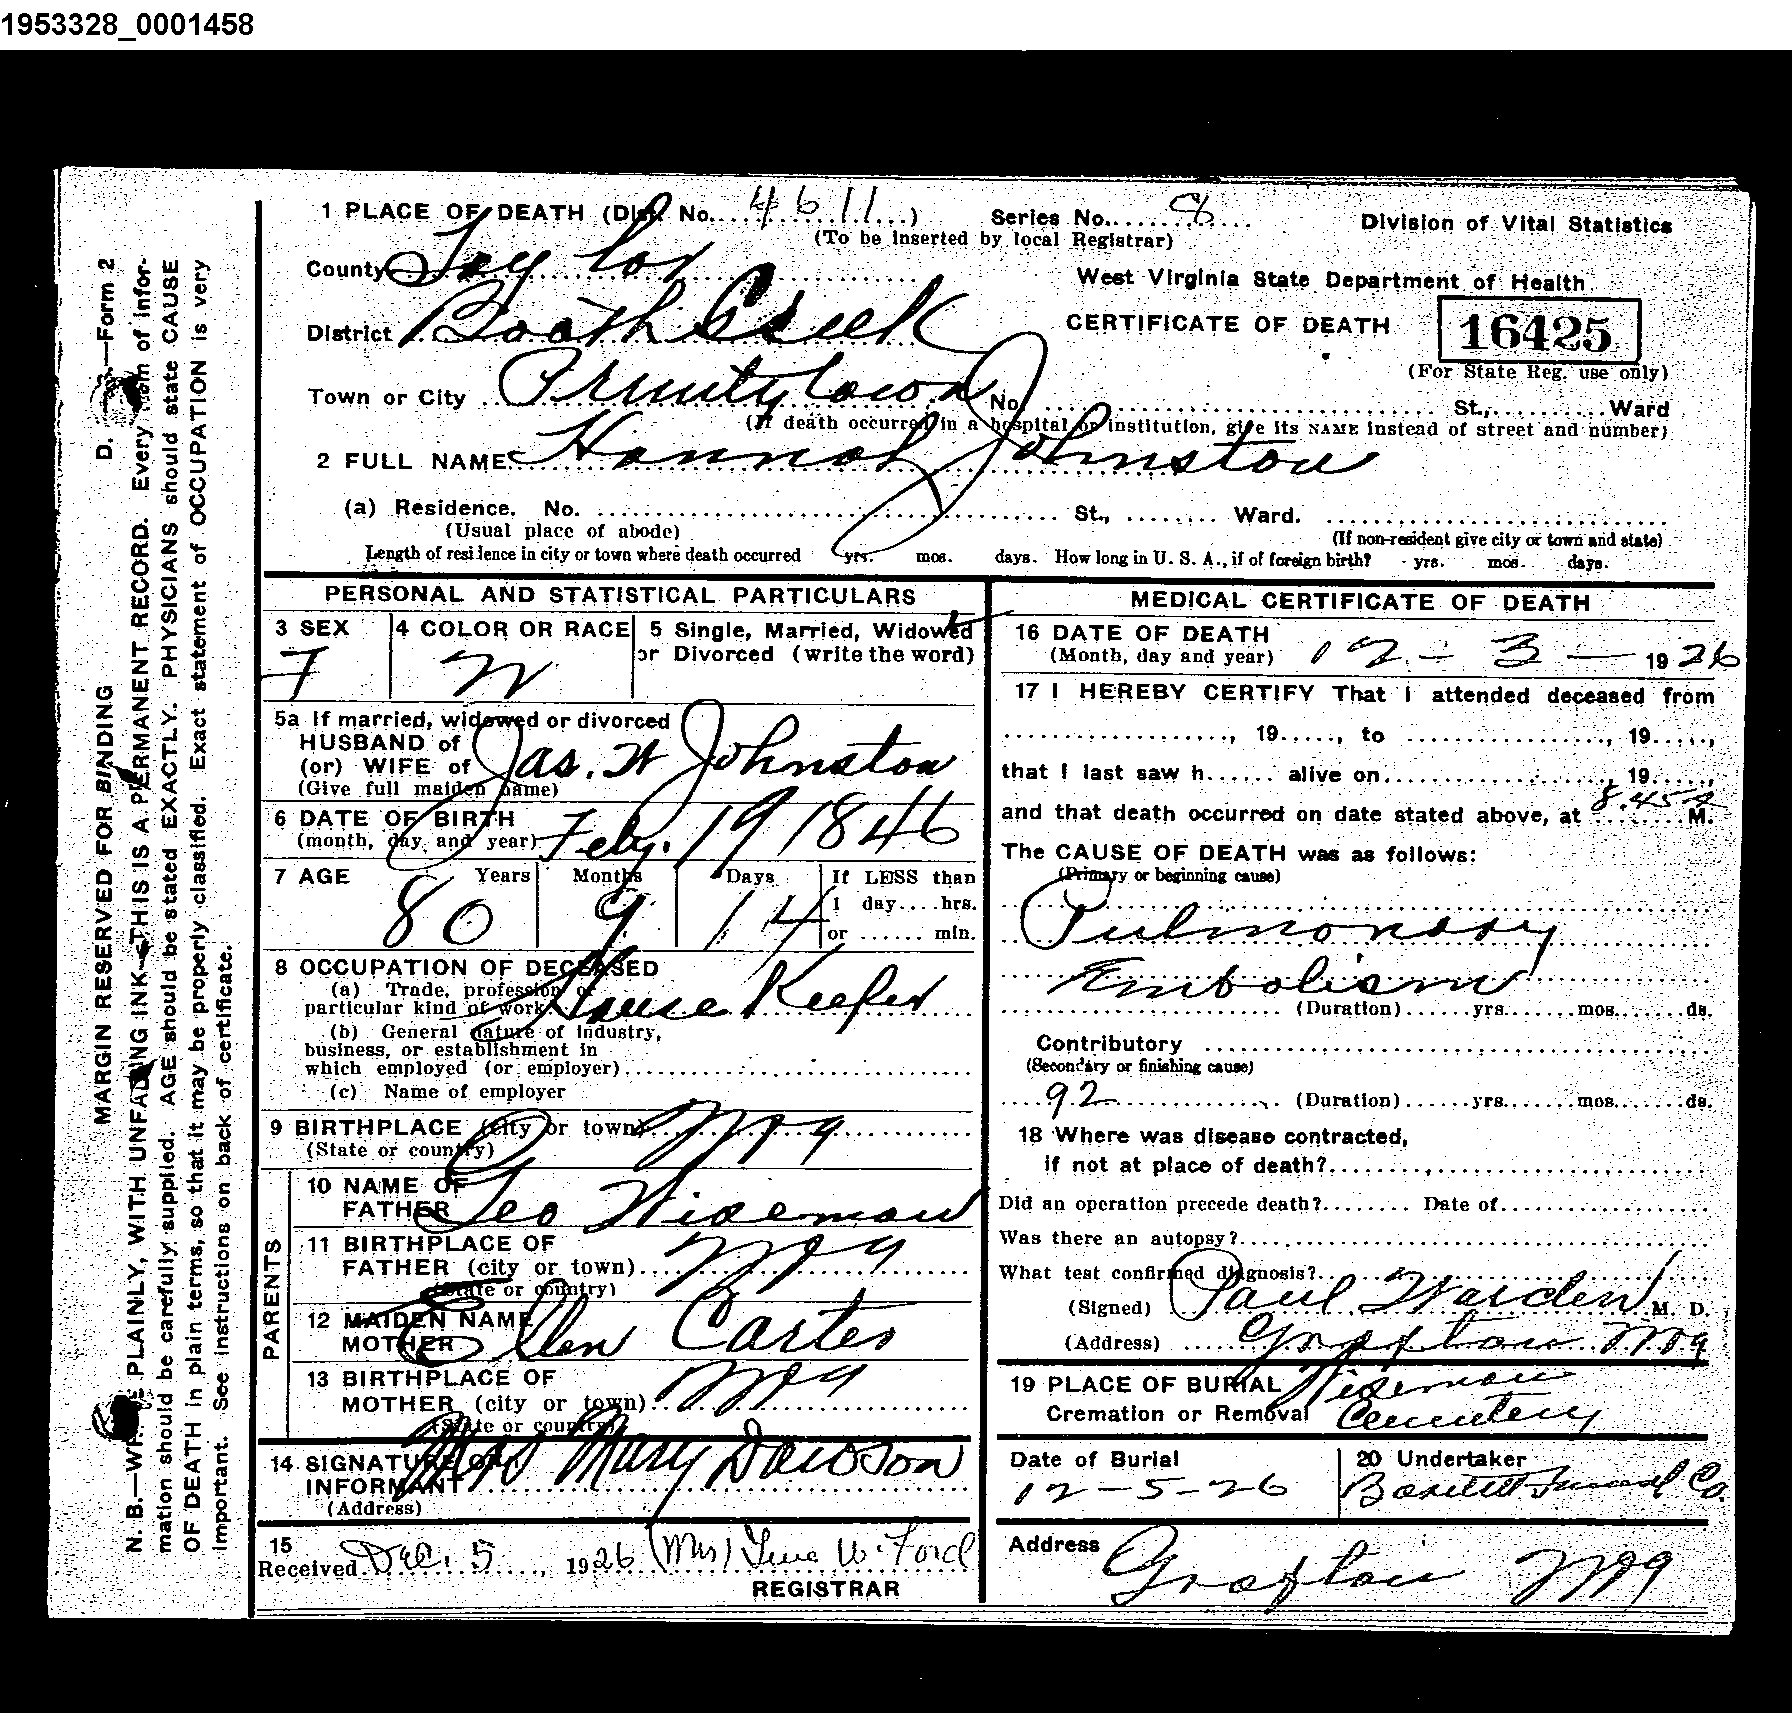 1953328_0001458
1 PLACE OF DEATH (Dist. No. 4611) Series No. 8 Division of Vital Statistics
(To be inserted by local Registrar)
County Taylor
West Virginia State Department of Health
District Booth Creek CERTIFICATE OF DEATH 16425
(For State Reg. use only)
Town or City Pruntytown No. St., Ward
(If death occurred in a hospital or institution, give its NAME instead of street and number)
2 FULL NAME Hannah Johnston
(a) Residence. No. St., Ward.
(Usual place of abode) (If non-resident give city or town and state)
Length of residence in city or town where death occurred yrs. mos. days. How long in U. S. A., if of foreign birth? yrs. mos. days.
PERSONAL AND STATISTICAL PARTICULARS
3 SEX 4 COLOR OR RACE 5 Single, Married, Widowed
or Divorced (write the word)
F W
5a If married, widowed or divorced
HUSBAND of
(or) WIFE of Jas. W Johnston
(Give full maiden name)
6 DATE OF BIRTH
(month, day, and year) Feby. 19 1846
7 AGE Years Months Days If LESS than
1 day....hrs.
80 9 14 or ...... min.
8 OCCUPATION OF DECEASED
(a) Trade, profession or
particular kind of work House Keeper
(b) General nature of industry,
business, or establishment in
which employed (or employer)
(c) Name of employer
9 BIRTHPLACE (city or town) W Va
(State or country)
PARENTS
10 NAME OF
FATHER Geo Wiseman
11 BIRTHPLACE OF
FATHER (city or town) W Va
(State or country)
12 MAIDEN NAME
MOTHER Ellen Carter
13 BIRTHPLACE OF
MOTHER (city or town) W Va
(State or country)
14 SIGNATURE OF
INFORMANT Mrs Mary Dawson
(Address)
15
Received Dec. 5, 1926 (Mrs) W. Ford
REGISTRAR
MEDICAL CERTIFICATE OF DEATH
16 DATE OF DEATH
(Month, day and year) 12 - 3 - 1926
17 I HEREBY CERTIFY That I attended deceased from
, 19....., to , 19.....,
that I last saw h...... alive on , 19.....,
and that death occurred on date stated above, at 8.45 a M.
The CAUSE OF DEATH was as follows:
(Primary or beginning cause)
Pulmonary
Embolism
(Duration)......yrs.......mos.......ds.
Contributory
(Secondary or finishing cause)
92 (Duration)......yrs.......mos.......ds.
18 Where was disease contracted,
if not at place of death?
Did an operation precede death?........ Date of
Was there an autopsy?
What test confirmed diagnosis?
(Signed) Paul Warden M. D.
(Address) Grafton W Va
19 PLACE OF BURIAL Wiseman
Cremation or Removal Cemetery
Date of Burial 20 Undertaker
12-5-26 Funeral Co.
Address
Grafton W Va
D. —Form 2
MARGIN RESERVED FOR BINDING
N. B.—WRITE PLAINLY, WITH UNFADING INK—THIS IS A PERMANENT RECORD. Every item of infor-
mation should be carefully supplied. AGE should be stated EXACTLY. PHYSICIANS should state CAUSE
OF DEATH in plain terms, so that it may be properly classified. Exact statement of OCCUPATION is very
important. See instructions on back of certificate.